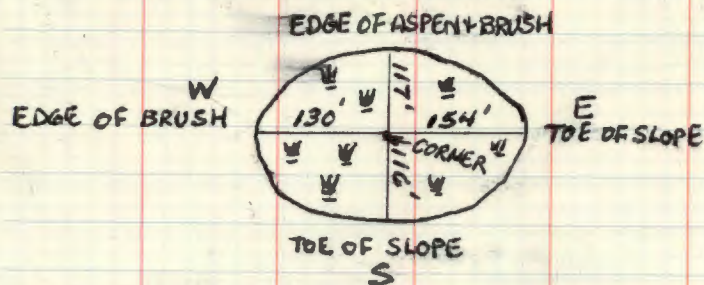 EDGE OF ASPEN + BRUSH
W
EDGE OF BRUSH
130'
117'
154'
E
TOE OF SLOPE
CORNER
116'
TOE OF SLOPE
S